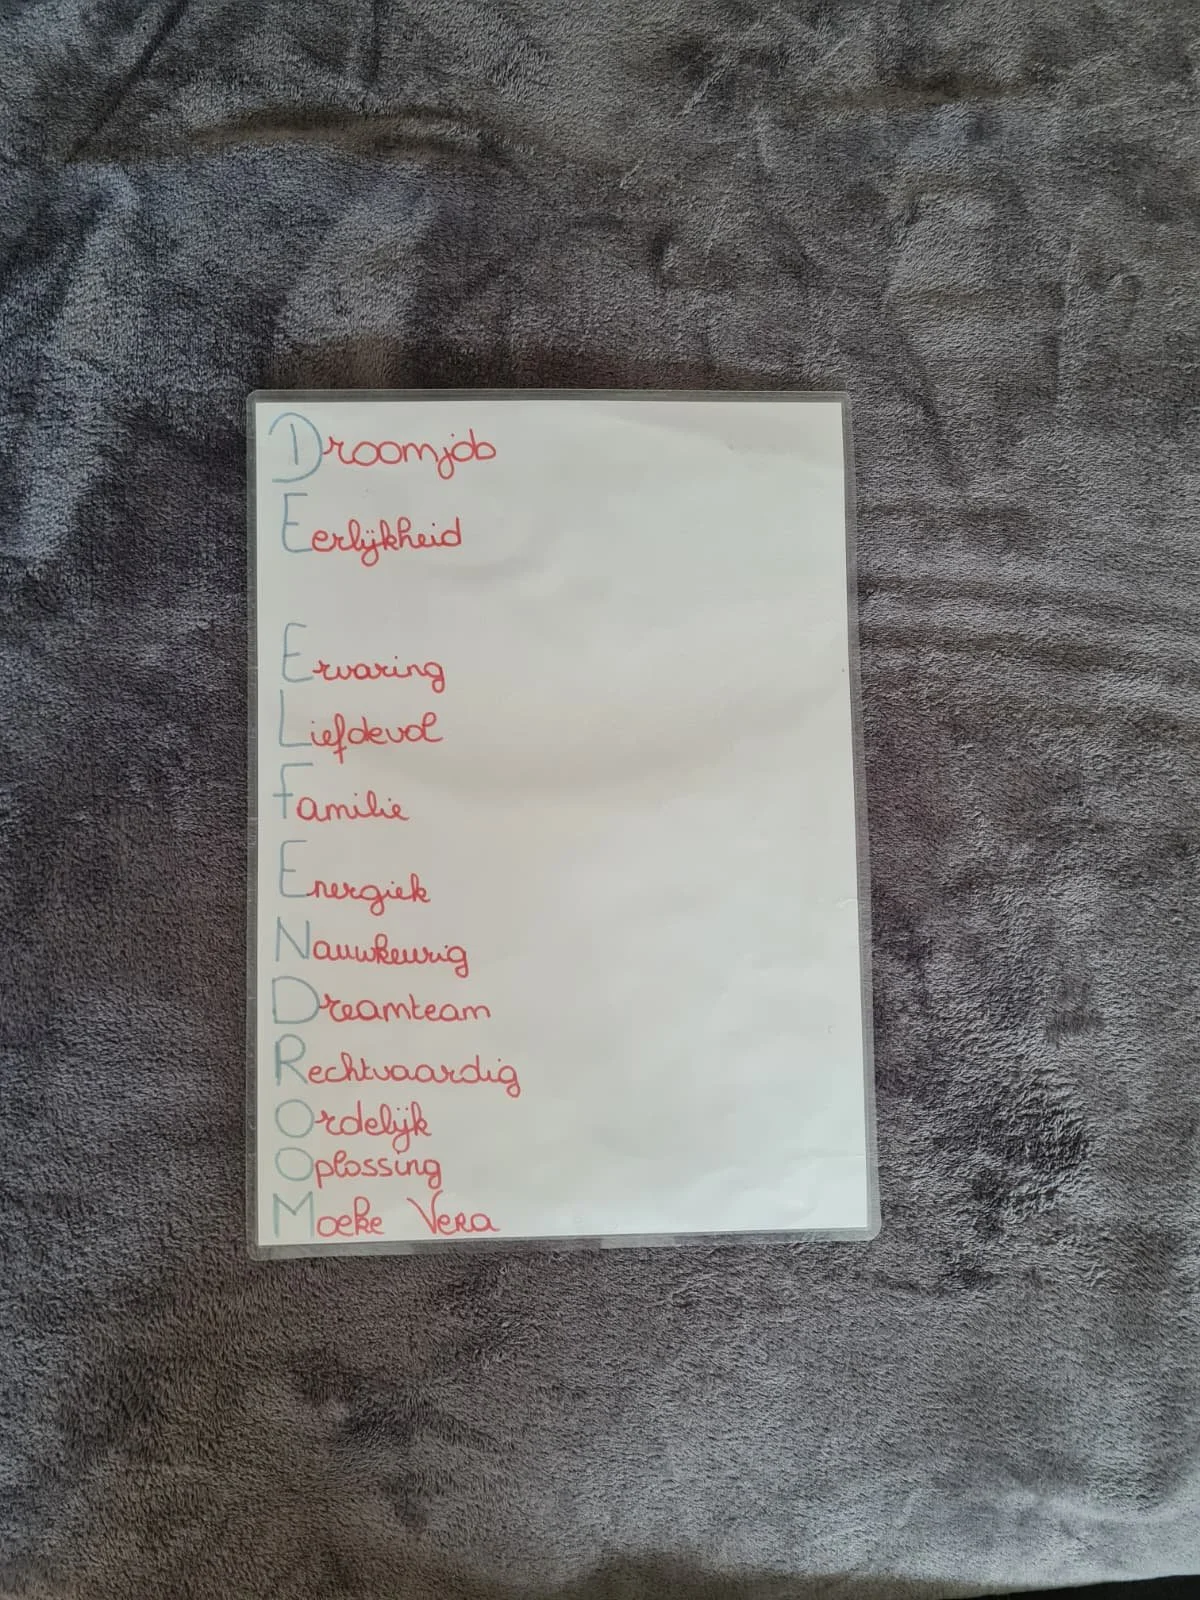 Droomjob
Eerlijkheid
Ervaring
Liefdevol
Familie
Energiek
Nauwkeurig
Dreamteam
Rechtvaardig
Ordelijk
Oplossing
Moeke Vera